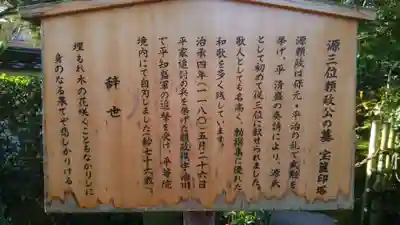 源三位頼政公の墓 宝篋印塔
源頼政は保元・平治の乱で武勲を
挙げ、平清盛の奏請により、源氏
として初めて従三位に叙せられました。
歌人としても名高く、勅撰集に優れた
和歌を多く残しています。
治承四年(一一八〇)五月二十六日
平家追討の兵を挙げた頼政は宇治川
で平知盛軍の追撃を受け、平等院
境内にて自刃しました(齢七十六歳)。
辞世
埋もれ木の花咲くこともなかりしに
身のなる果てや悲しかりける